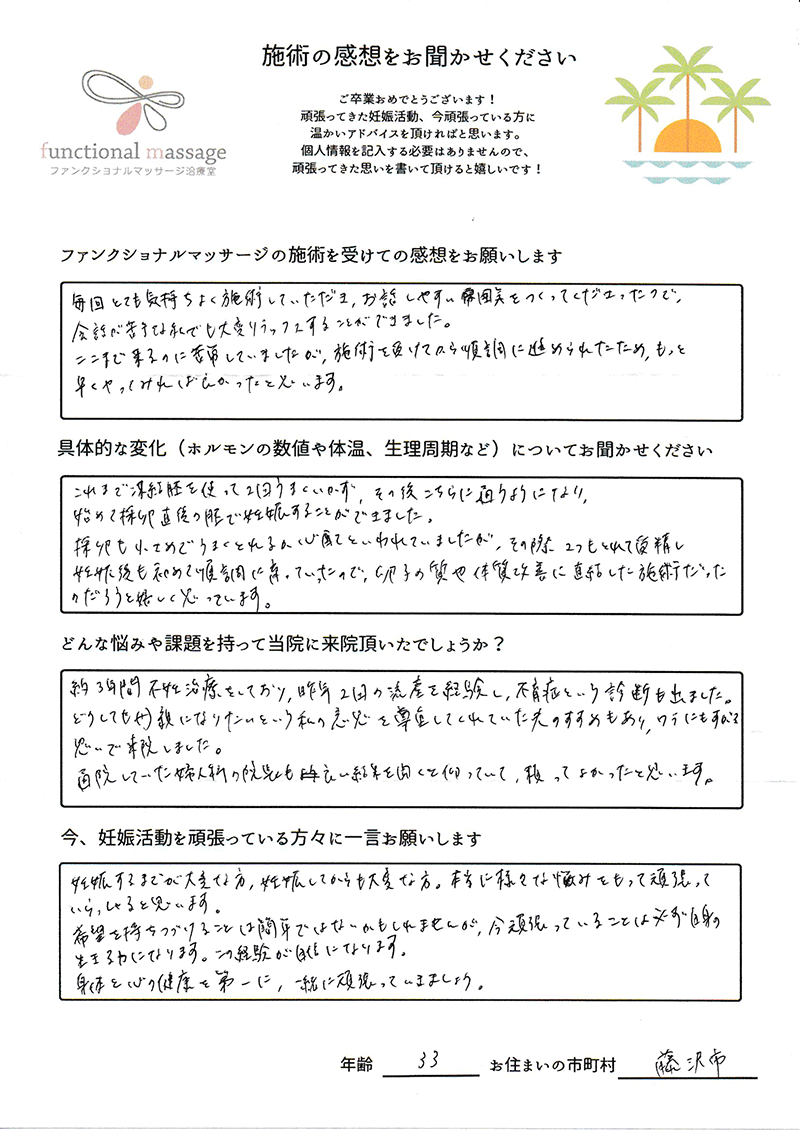 施術の感想をお聞かせください
ご卒業おめでとうございます！
頑張ってきた妊娠活動、今頑張っている方に
温かいアドバイスを頂ければと思います。
個人情報を記入する必要はありませんので、
頑張ってきた思いを書いて頂けると嬉しいです！
functional massage
ファンクショナルマッサージ治療室
ファンクショナルマッサージの施術を受けての感想をお願いします
毎回とても気持ちよく施術していただき、お話しやすい雰囲気をつくってくださったので、
会話が苦手な私でも大変リラックスすることができました。
ここまで来るのに苦労していましたが、施術を受けてから順調に進められたため、もっと
早くやってみれば良かったと思います。
具体的な変化（ホルモンの数値や体温、生理周期など）についてお聞かせください
これまで凍結胚を使って2回うまくいかず、その後こちらに通うようになり、
始めて採卵直後の胚で妊娠することができました。
採卵も小さめでうまくとれるか心配といわれていましたが、その際2つもとれて受精し
妊娠後も初めて順調に育っていたので、卵子の質や体質改善に直結した施術だった
のだろうと嬉しく思っています。
どんな悩みや課題を持って当院に来院頂いたでしょうか？
約3年間不妊治療をしており、昨年2回の流産を経験し、不育症という診断も出ました。
どうしても親になりたいという私の意思を尊重してくれていた夫のすすめもあり、ワラにもすがる
思いで来院しました。
通院していた婦人科の院長も良い結果を聞くと仰っていて、頼ってよかったと思います。
今、妊娠活動を頑張っている方々に一言お願いします
妊娠するまでが大変な方、妊娠してからも大変な方。本当に様々な悩みをもって頑張って
いらっしゃると思います。
希望を持ちつづけることは簡単ではないかもしれませんが、今頑張っていることは必ず自身の
生きる力になります。この経験が自信になります。
身体と心の健康を第一に、一緒に頑張っていきましょう。
年齢 33 お住まいの市町村 藤沢市